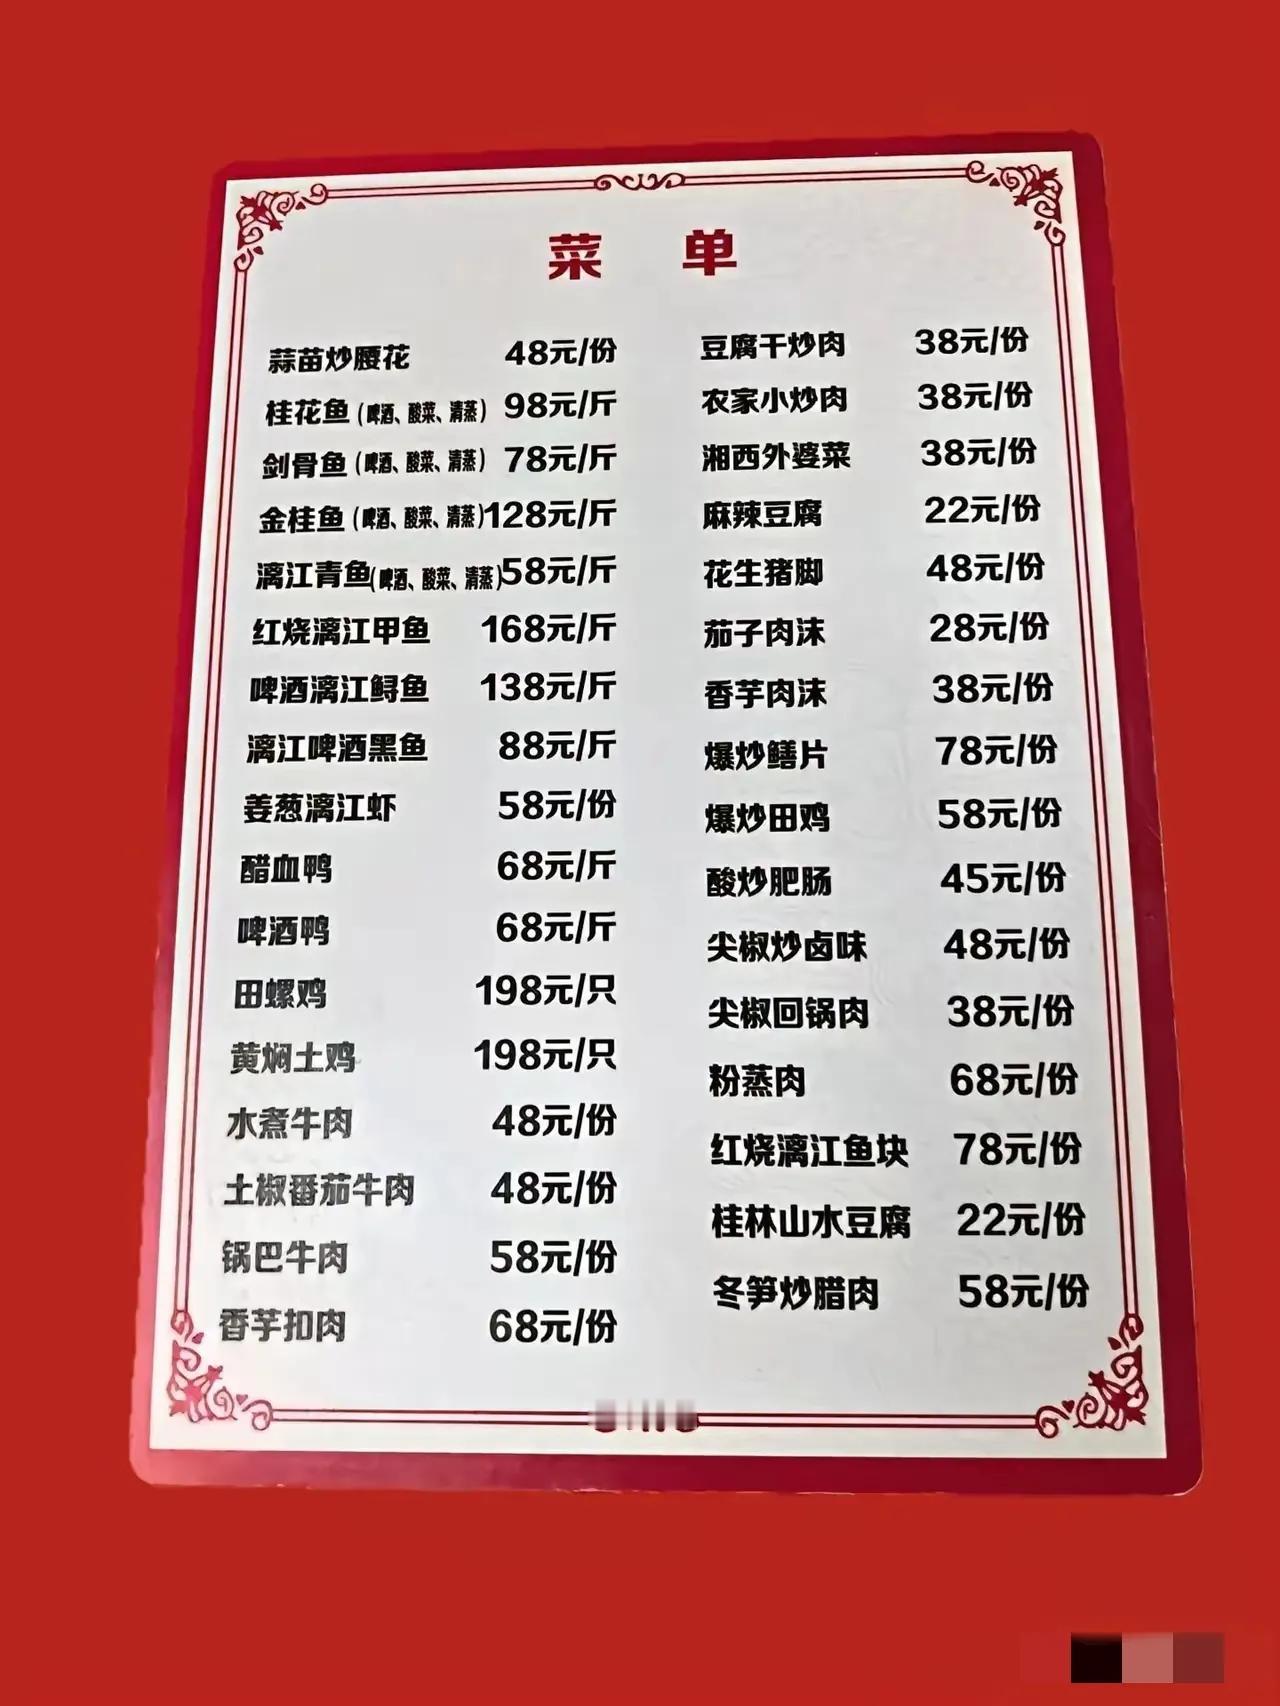 菜 单
蒜苗炒腰花 48元/份
桂花鱼(啤酒、酸菜、清蒸) 98元/斤
剑骨鱼(啤酒、酸菜、清蒸) 78元/斤
金桂鱼(啤酒、酸菜、清蒸)128元/斤
漓江青鱼(啤酒、酸菜、清蒸)58元/斤
红烧漓江甲鱼 168元/斤
啤酒漓江鲟鱼 138元/斤
漓江啤酒黑鱼 88元/斤
姜葱漓江虾 58元/份
醋血鸭 68元/斤
啤酒鸭 68元/斤
田螺鸡 198元/只
黄焖土鸡 198元/只
水煮牛肉 48元/份
土椒番茄牛肉 48元/份
锅巴牛肉 58元/份
香芋扣肉 68元/份
豆腐干炒肉 38元/份
农家小炒肉 38元/份
湘西外婆菜 38元/份
麻辣豆腐 22元/份
花生猪脚 48元/份
茄子肉沫 28元/份
香芋肉沫 38元/份
爆炒鳝片 78元/份
爆炒田鸡 58元/份
酸炒肥肠 45元/份
尖椒炒卤味 48元/份
尖椒回锅肉 38元/份
粉蒸肉 68元/份
红烧漓江鱼块 78元/份
桂林山水豆腐 22元/份
冬笋炒腊肉 58元/份